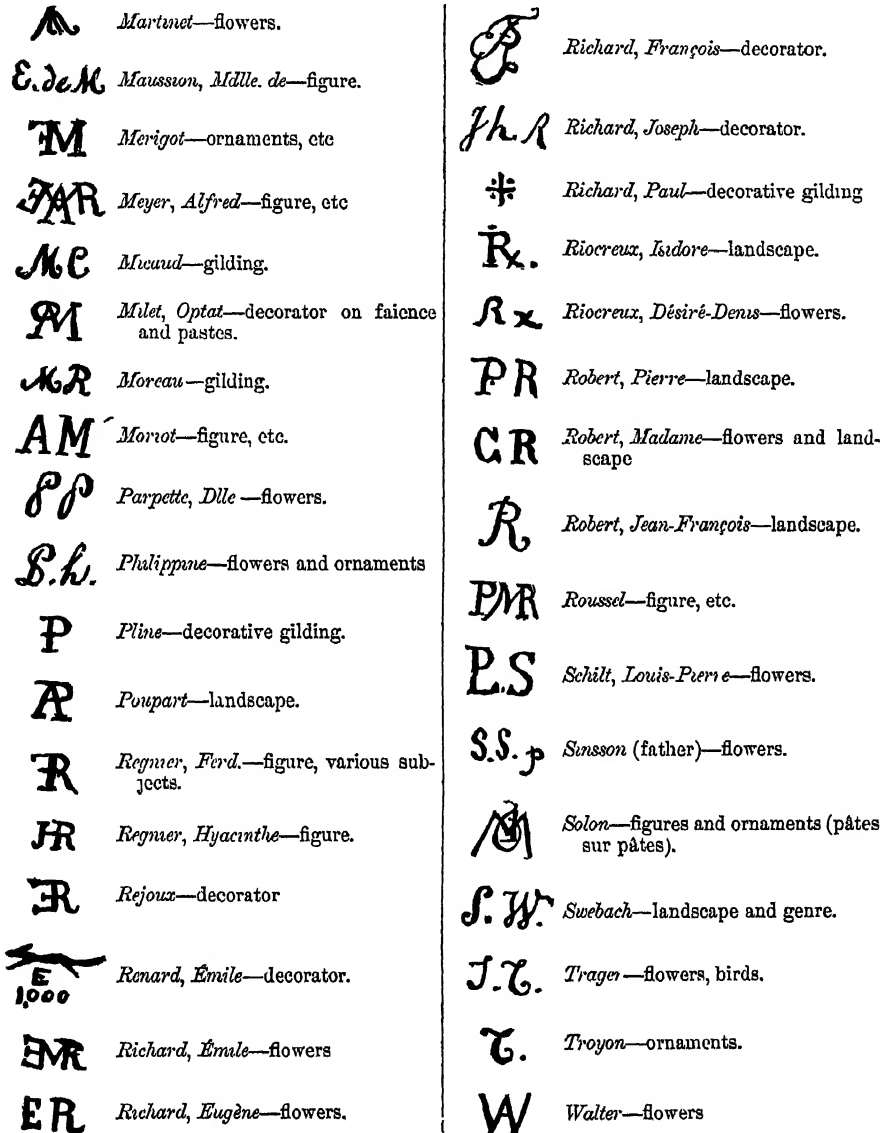 Martinet—flowers.
E. de M. Maussion, Mdlle. de—figure.
Merigot—ornaments, etc
Meyer, Alfred—figure, etc
MC Micaud—gilding.
Milet, Optat—decorator on faience
and pastes.
MR Moreau—gilding.
AM Moriot—figure, etc.
PP Parpette, Dlle—flowers.
P.h. Philippine—flowers and ornaments
P Pline—decorative gilding.
Poupart—landscape.
Regnier, Ferd.—figure, various sub-
jects.
Regnier, Hyacinthe—figure.
Rejoux—decorator
E
1,000 Renard, Émile—decorator.
Richard, Émile—flowers
ER Richard, Eugène—flowers.
Richard, François—decorator.
Jh. R Richard, Joseph—decorator.
Richard, Paul—decorative gilding
Rx. Riocreux, Isidore—landscape.
Rx Riocreux, Désiré-Denis—flowers.
PR Robert, Pierre—landscape.
CR Robert, Madame—flowers and land-
scape
R Robert, Jean-François—landscape.
PMR Roussel—figure, etc.
P.S Schilt, Louis-Pierre—flowers.
S.S. p Sinsson (father)—flowers.
Solon—figures and ornaments (pâtes
sur pâtes).
S. W. Swebach—landscape and genre.
J. T. Trager—flowers, birds.
T. Troyon—ornaments.
W Walter—flowers